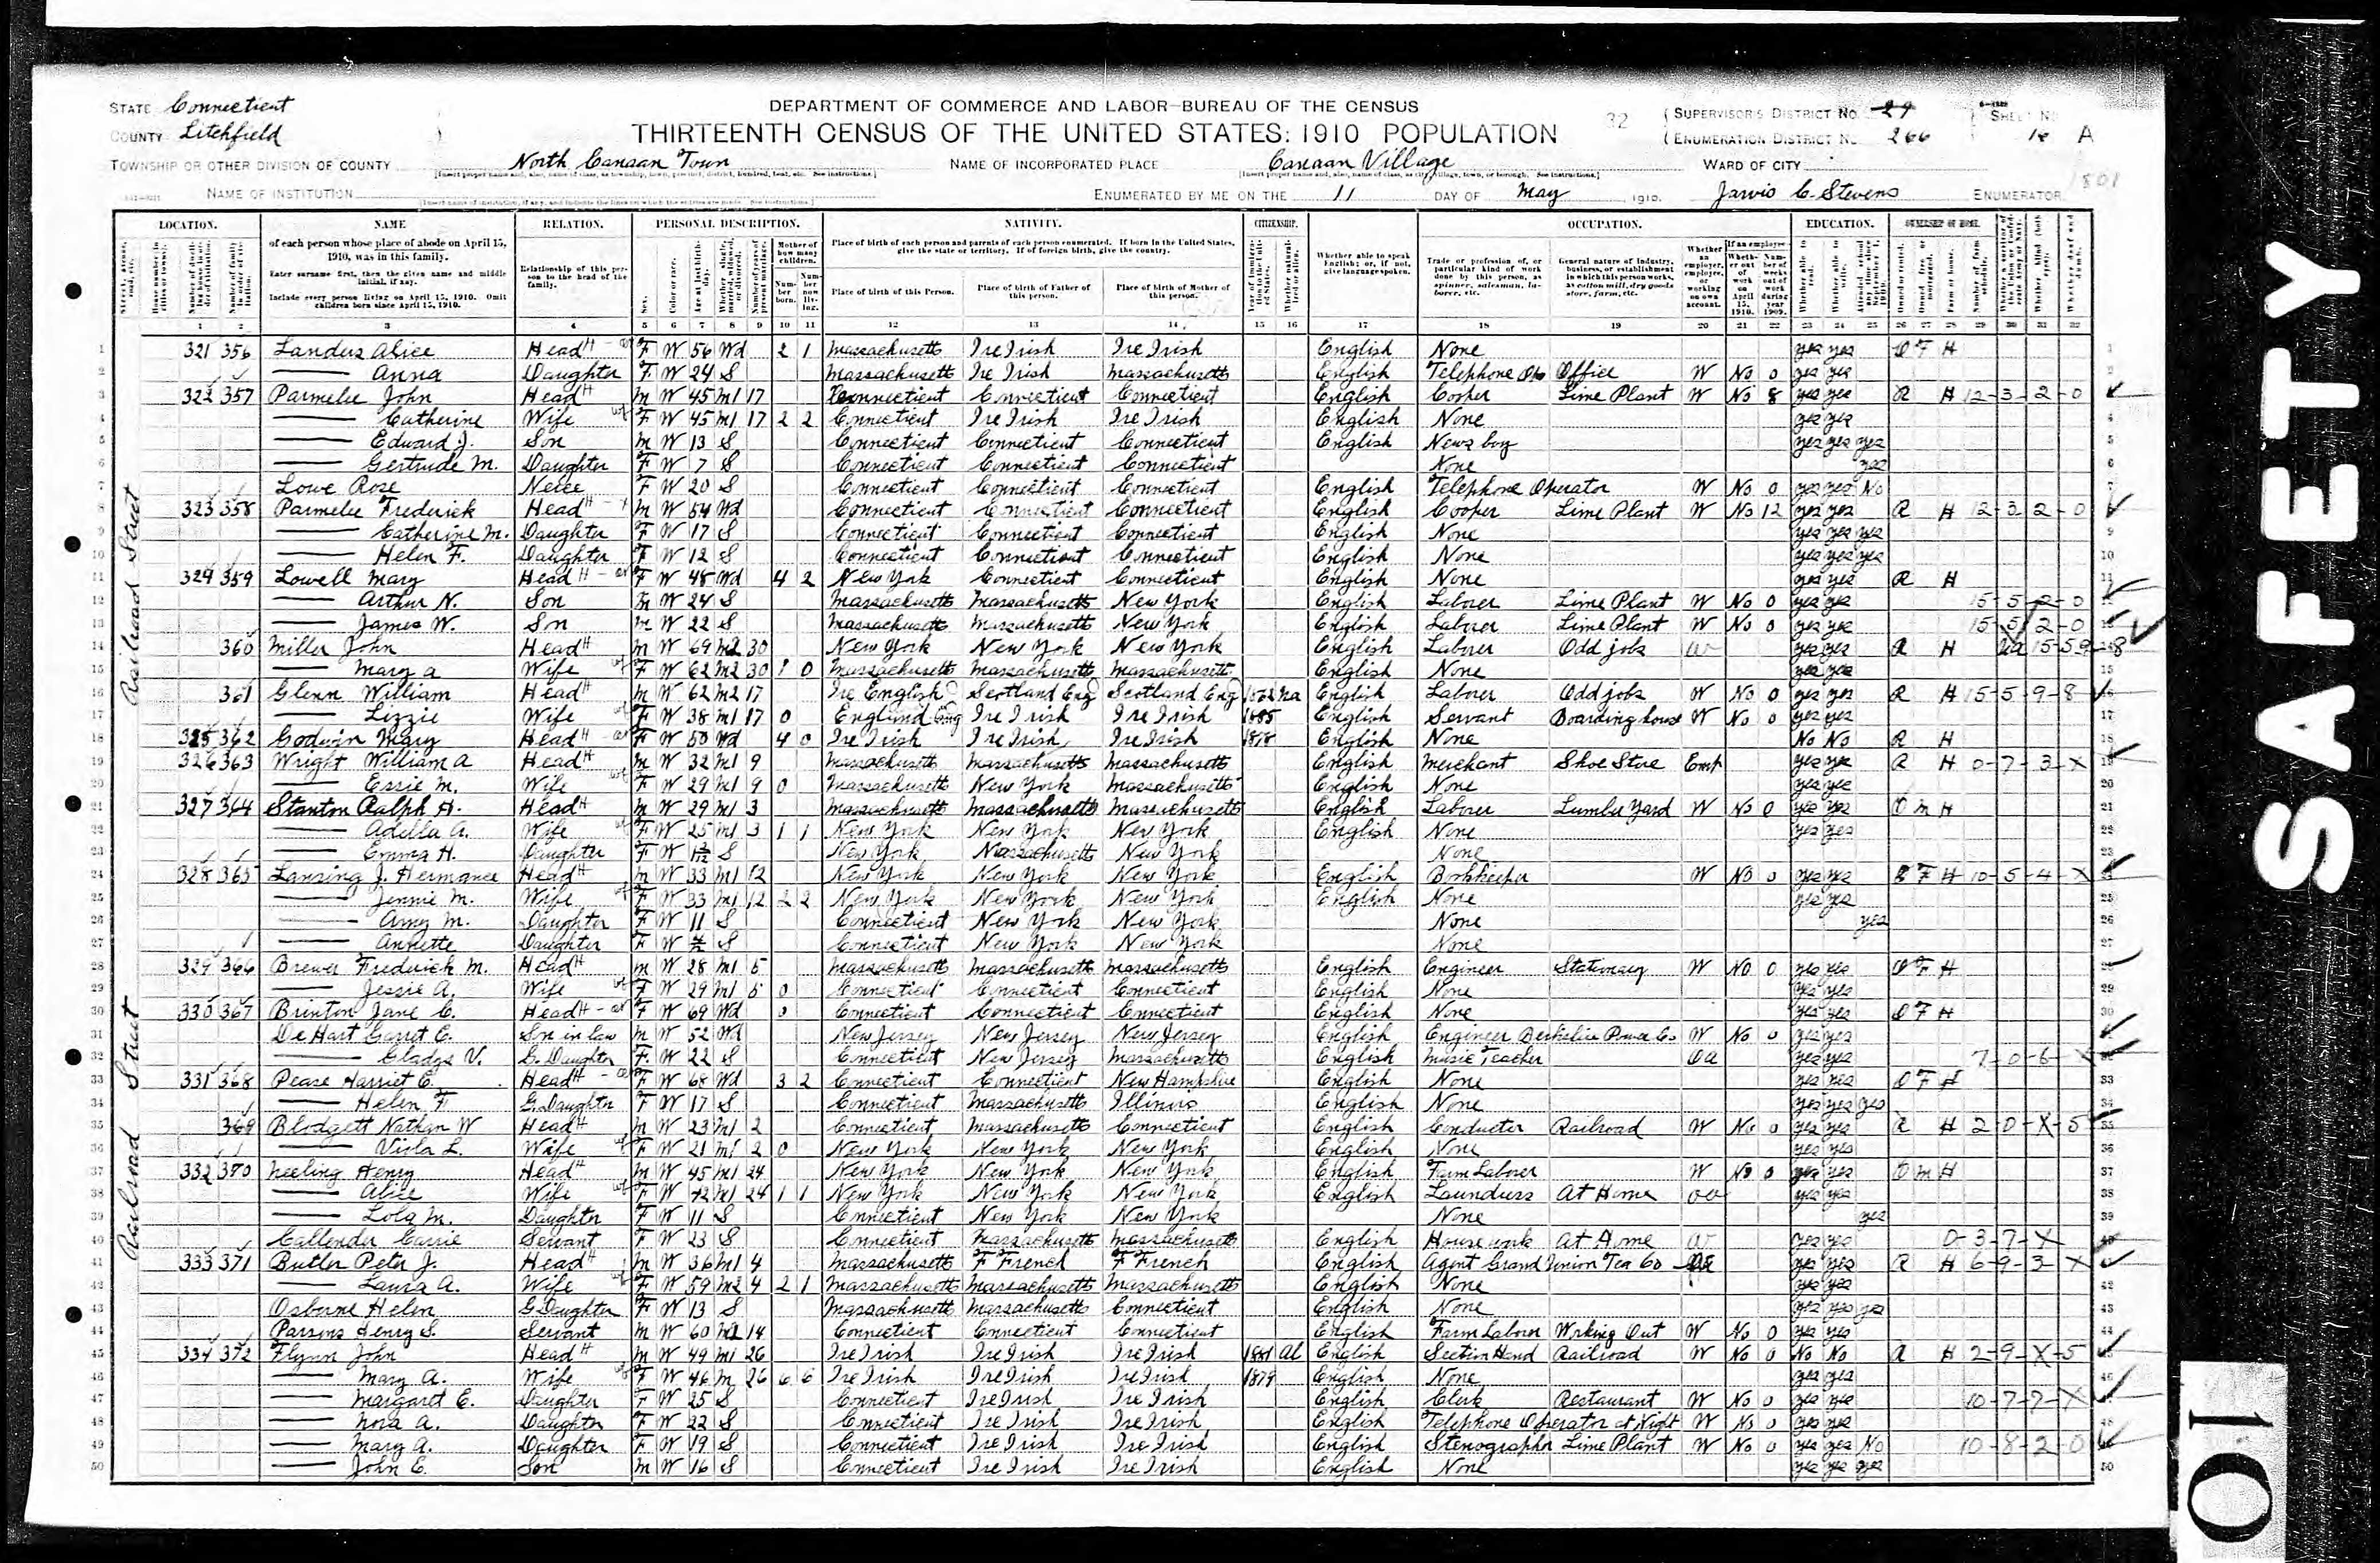 STATE Connecticut
COUNTY Litchfield
DEPARTMENT OF COMMERCE AND LABOR—BUREAU OF THE CENSUS
THIRTEENTH CENSUS OF THE UNITED STATES: 1910 POPULATION
32
SUPERVISOR'S DISTRICT No. 29
ENUMERATION DISTRICT No. 266
SHEET No.
A
TOWNSHIP OR OTHER DIVISION OF COUNTY North Canaan Town
NAME OF INCORPORATED PLACE Canaan Village
WARD OF CITY
NAME OF INSTITUTION
ENUMERATED BY ME ON THE 11 DAY OF May, 1910. Jarvis C. Stevens ENUMERATOR
1801
LOCATION. NAME RELATION. PERSONAL DESCRIPTION. NATIVITY. CITIZENSHIP. OCCUPATION. EDUCATION. OWNERSHIP OF HOME.
of each person whose place of abode on April 15, 1910, was in this family.
Enter surname first, then the given name and middle initial, if any.
Include every person living on April 15, 1910. Omit children born since April 15, 1910.
Relationship of this person to the head of the family.
Mother of how many children.
Place of birth of each person and parents of each person enumerated. If born in the United States, give the state or territory. If of foreign birth, give the country.
Place of birth of this Person. Place of birth of Father of this person. Place of birth of Mother of this person.
Whether able to speak English; or, if not, give language spoken.
Trade or profession of, or particular kind of work done by this person, as spinner, salesman, laborer, etc.
General nature of industry, business, or establishment in which this person works, as cotton mill, dry goods store, farm, etc.
Whether an employer, employee, or working on own account.
1 2 3 4 5 6 7 8 9 10 11 12 13 14 15 16 17 18 19 20 21 22 23 24 25 26 27 28 29 30 31 32
Railroad Street
Railroad Street
1 321 356 Landers Alice Head F W 56 Wd 2 1 Massachusetts Ire Irish Ire Irish English None yes yes O F H
2 —— Anna Daughter F W 24 S Massachusetts Ire Irish Massachusetts English Telephone Office W No 0 yes yes
3 322 357 Parmelee John Head M W 45 M1 17 Connecticut Connecticut Connecticut English Cooper Lime Plant W No 8 yes yes R H 12-3-2-0
4 —— Catherine Wife F W 45 M1 17 2 2 Connecticut Ire Irish Ire Irish English None yes yes
5 —— Edward J. Son M W 13 S Connecticut Connecticut Connecticut English News boy yes yes yes
6 —— Gertrude M. Daughter F W 7 S Connecticut Connecticut Connecticut None yes
7 Lowe Rose Neice F W 20 S Connecticut Connecticut Connecticut English Telephone Operator W No 0 yes yes No
8 323 358 Parmelee Frederick Head M W 54 Wd Connecticut Connecticut Connecticut English Cooper Lime Plant W No 12 yes yes R H 12-3-2-0
9 —— Catherine M. Daughter F W 17 S Connecticut Connecticut Connecticut English None yes yes yes
10 —— Helen F. Daughter F W 12 S Connecticut Connecticut Connecticut English None yes yes yes
11 324 359 Lowell Mary Head F W 48 Wd 4 2 New York Connecticut Connecticut English None yes yes R H
12 —— Arthur N. Son M W 24 S Massachusetts Massachusetts New York English Laborer Lime Plant W No 0 yes yes 15-5-2-0
13 —— James W. Son M W 22 S Massachusetts Massachusetts New York English Laborer Lime Plant W No 0 yes yes 15-5-2-0
14 360 Miller John Head M W 69 M2 30 New York New York New York English Laborer Odd jobs W yes yes R H
15 —— Mary A Wife F W 62 M2 30 1 0 Massachusetts Massachusetts Massachusetts English None yes yes
16 361 Glenn William Head M W 62 M2 17 Ire English Scotland Eng Scotland Eng Na English Laborer Odd jobs W No 0 yes yes R H 15-5-9-8
17 —— Lizzie Wife F W 38 M1 17 0 England Eng Ire Irish Ire Irish 1885 English Servant Boarding house W No 0 yes yes
18 325 362 Godwin Mary Head F W 50 Wd 4 0 Ire Irish Ire Irish Ire Irish 1878 English None No No R H
19 326 363 Wright William A Head M W 32 M1 9 Massachusetts Massachusetts Massachusetts English Merchant Shoe Store Emp yes yes R H 0-7-3-X
20 —— Essie M. Wife F W 29 M1 9 0 Massachusetts New York Massachusetts English None yes yes
21 327 364 Stanton Ralph H. Head M W 29 M1 3 Massachusetts Massachusetts Massachusetts English Laborer Lumber Yard W No 0 yes yes O M H
22 —— Adella A. Wife F W 25 M1 3 1 1 New York New York New York English None yes yes
23 —— Emma H. Daughter F W S New York Massachusetts New York None
24 328 365 Lansing J. Hermance Head M W 33 M1 12 New York New York New York English Bookkeeper W No 0 yes yes F H 10-5-4-X
25 —— Jennie M. Wife F W 33 M1 12 2 2 New York New York New York English None yes yes
26 —— Amy M. Daughter F W 11 S Connecticut New York New York None yes
27 —— Annette Daughter F W S Connecticut New York New York None
28 329 366 Brewer Frederick M. Head M W 28 M1 5 Massachusetts Massachusetts Massachusetts English Engineer Stationary W No 0 yes yes O F H
29 —— Jessie A. Wife F W 29 M1 5 0 Connecticut Connecticut Connecticut English None yes yes
30 330 367 Brinton Jane C. Head F W 69 Wd 0 Connecticut Connecticut Connecticut English None yes yes O F H
31 De Hart Garret C. Son in law M W 52 Wd New Jersey New Jersey New Jersey English Engineer Power Co W No 0 yes yes
32 —— Gladys V. G. Daughter F W 22 S Connecticut New Jersey Massachusetts English Music Teacher Oa yes yes 7-0-6-X
33 331 368 Pease Harriet E. Head F W 68 Wd 3 2 Connecticut Connecticut New Hampshire English None yes yes O F H
34 —— Helen F G. Daughter F W 17 S Connecticut Massachusetts Illinois English None yes yes yes
35 369 Blodgett Nathan W Head M W 23 M1 2 Connecticut Massachusetts Connecticut English Conductor Railroad W No 0 yes yes R H 2-0-X-5
36 —— Viola L. Wife F W 21 M1 2 0 New York New York New York English None yes yes
37 332 370 Neeling Henry Head M W 45 M1 24 New York New York New York English Farm Laborer W No 0 yes yes O M H
38 —— Alice Wife F W 42 M1 24 1 1 New York New York New York English Laundress At Home Oa yes yes
39 —— Lola M. Daughter F W 11 S Connecticut New York New York None yes
40 Callender Carrie Servant F W 23 S Connecticut Massachusetts Massachusetts English House work At Home W yes yes 0-3-7-X
41 333 371 Butler Peter J. Head M W 36 M1 4 Massachusetts F French F French English Agent Grand Union Tea Co yes yes R H 6-9-3-X
42 —— Laura A. Wife F W 59 M2 4 2 1 Massachusetts Massachusetts Massachusetts English None yes yes
43 Osborne Helen G Daughter F W 13 S Massachusetts Massachusetts Connecticut English None yes yes yes
44 Parsons Henry S. Servant M W 60 M2 14 Connecticut Connecticut Connecticut English Farm Laborer Working Out W No 0 yes yes
45 334 372 Flynn John Head M W 49 M1 26 Ire Irish Ire Irish Ire Irish 1881 Al English Section Hand Railroad W No 0 No No R H 2-9-X-5
46 —— Mary A. Wife F W 46 M 26 6 6 Ire Irish Ire Irish Ire Irish 1879 English None yes yes
47 —— Margaret E. Daughter F W 25 S Connecticut Ire Irish Ire Irish English Clerk Restaurant W No 0 yes yes 10-7-7-X
48 —— Nora A. Daughter F W 22 S Connecticut Ire Irish Ire Irish English Telephone Operator at Night W No 0 yes yes
49 —— Mary A. Daughter F W 19 S Connecticut Ire Irish Ire Irish English Stenographer Lime Plant W No 0 yes yes No 10-8-2-0
50 —— John E. Son M W 16 S Connecticut Ire Irish Ire Irish English None yes yes yes
SAFETY
10